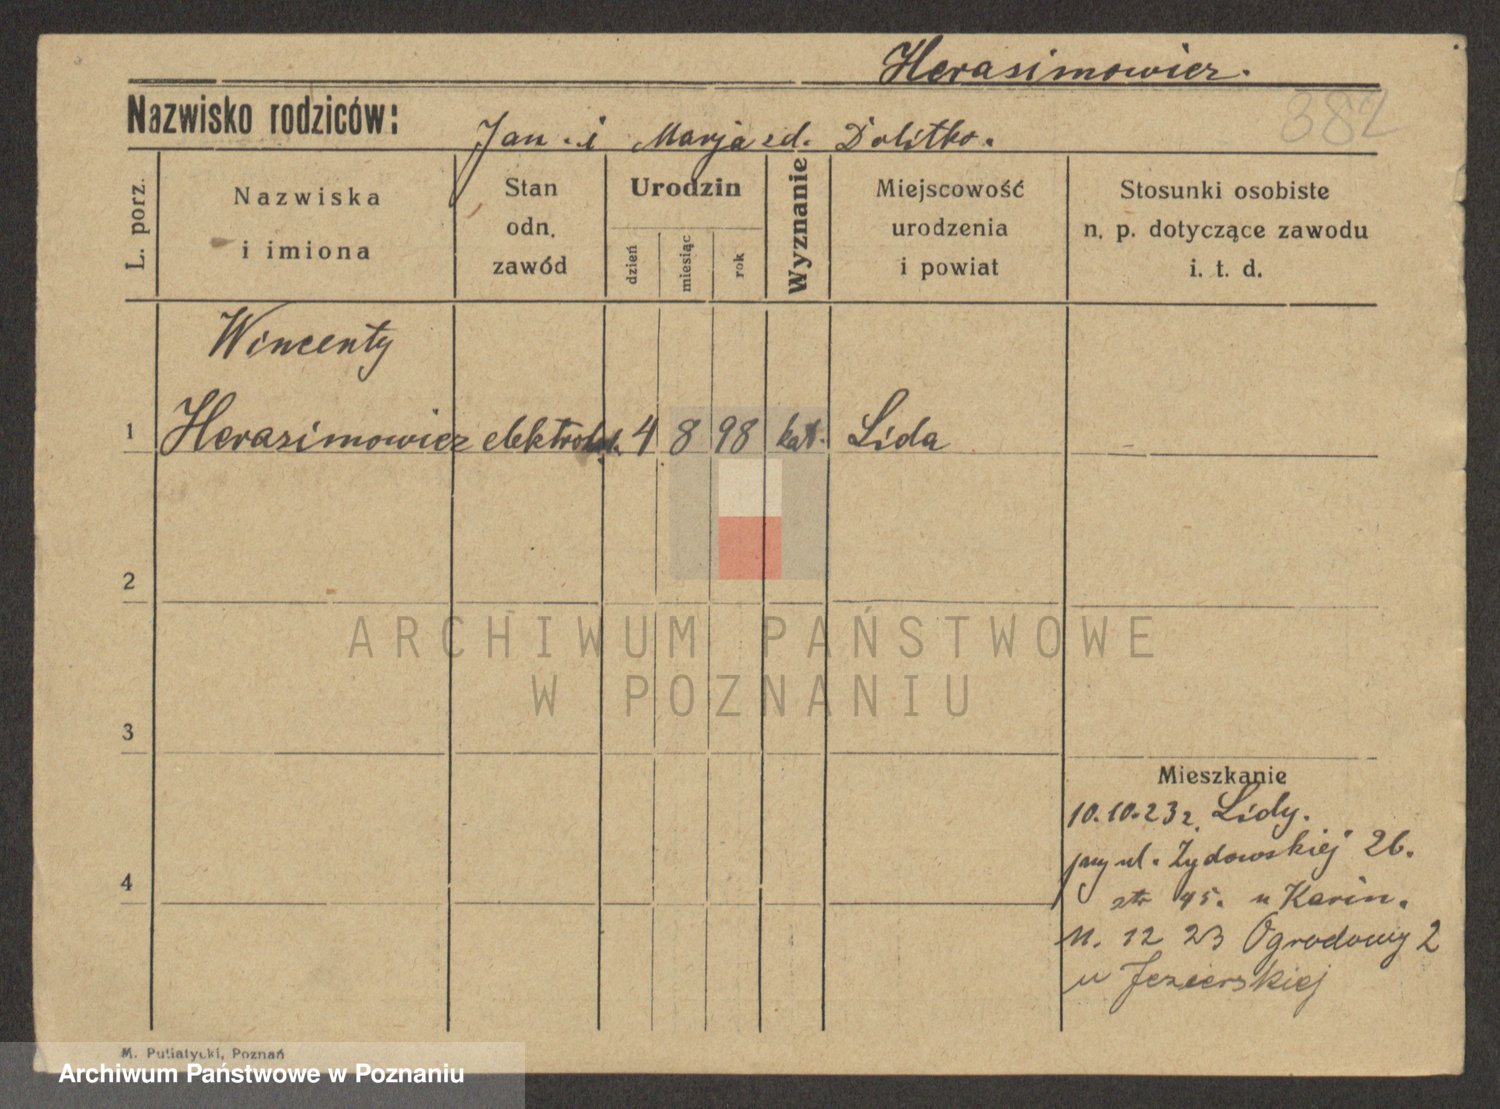 Herasimowicz.
382
Nazwisko rodziców:
Jan i Marja zd. Dolitko.
L. porz.
Nazwiska
i imiona
Stan
odn.
zawód
Urodzin
dzień
miesiąc
rok
Wyznanie
Miejscowość
urodzenia
i powiat
Stosunki osobiste
n. p. dotyczące zawodu
i. t. d.
Wincenty
1 Herasimowicz 4 8 98 kat. Lida
2
ARCHIWUM PAŃSTWOWE
W POZNANIU
3
Mieszkanie
10.10.23 z Lidy.
przy ul. Żydowskiej 26.
45. u Karin.
4
11. 12 23 Ogrodowy 2
u Jezierskiej
M. Putiatycki, Poznań
Archiwum Państwowe w Poznaniu